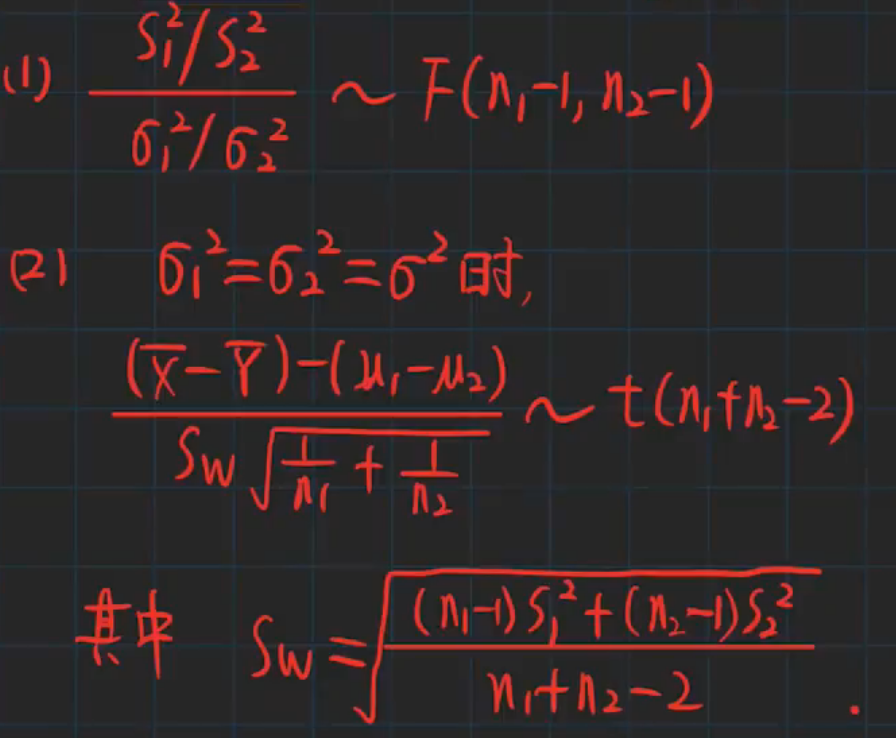 (1) \frac{S_1^2/S_2^2}{σ_1^2/σ_2^2} ~ F(n_1-1, n_2-1)
(2) σ_1^2=σ_2^2=σ^2 时,
\frac{(\overline{X}-\overline{Y})-(μ_1-μ_2)}{S_W\sqrt{\frac{1}{n_1}+\frac{1}{n_2}}} ~ t(n_1+n_2-2)
其中 S_W=\sqrt{\frac{(n_1-1)S_1^2+(n_2-1)S_2^2}{n_1+n_2-2}}.